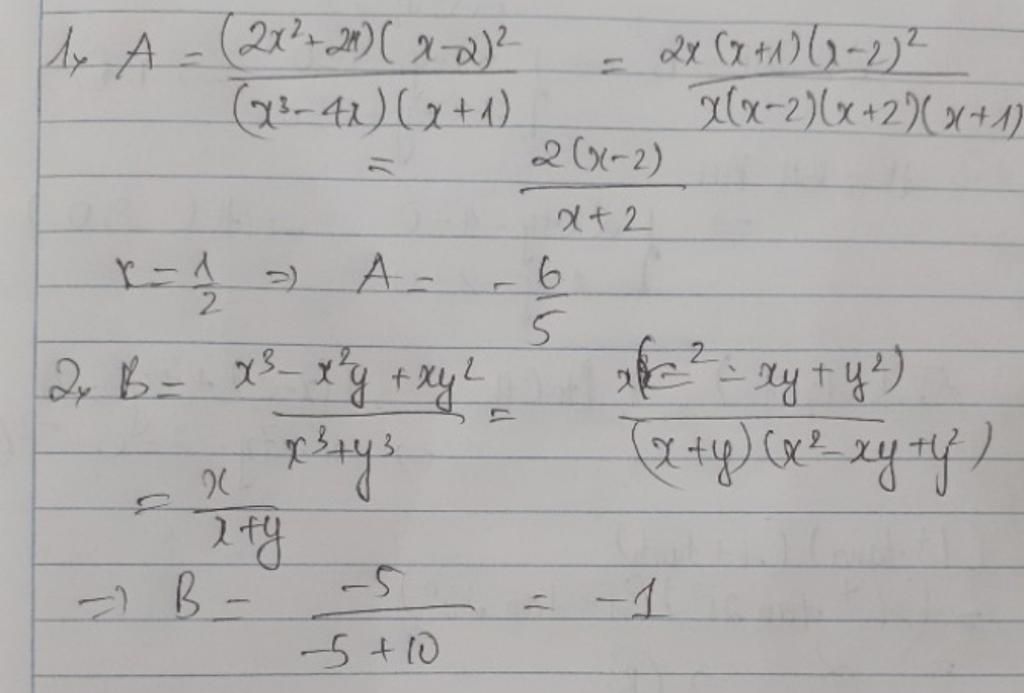 1, A = (2x² + 2x)(x-2)² / (x³ - 4x)(x + 1) = 2x(x+1)(x-2)² / x(x-2)(x+2)(x+1)
= 2(x-2) / x + 2
x = 1/2 => A = - 6/5
2, B = x³ - x²y + xy² / x³+y³ = x(x² - xy + y²) / (x+y)(x² - xy + y²)
= x / x+y
=> B = -5 / -5 + 10 = -1